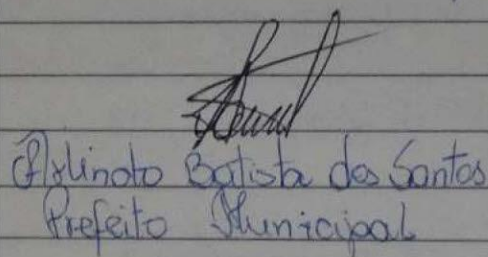 Arlinoto Batista dos Santos
Prefeito Municipal